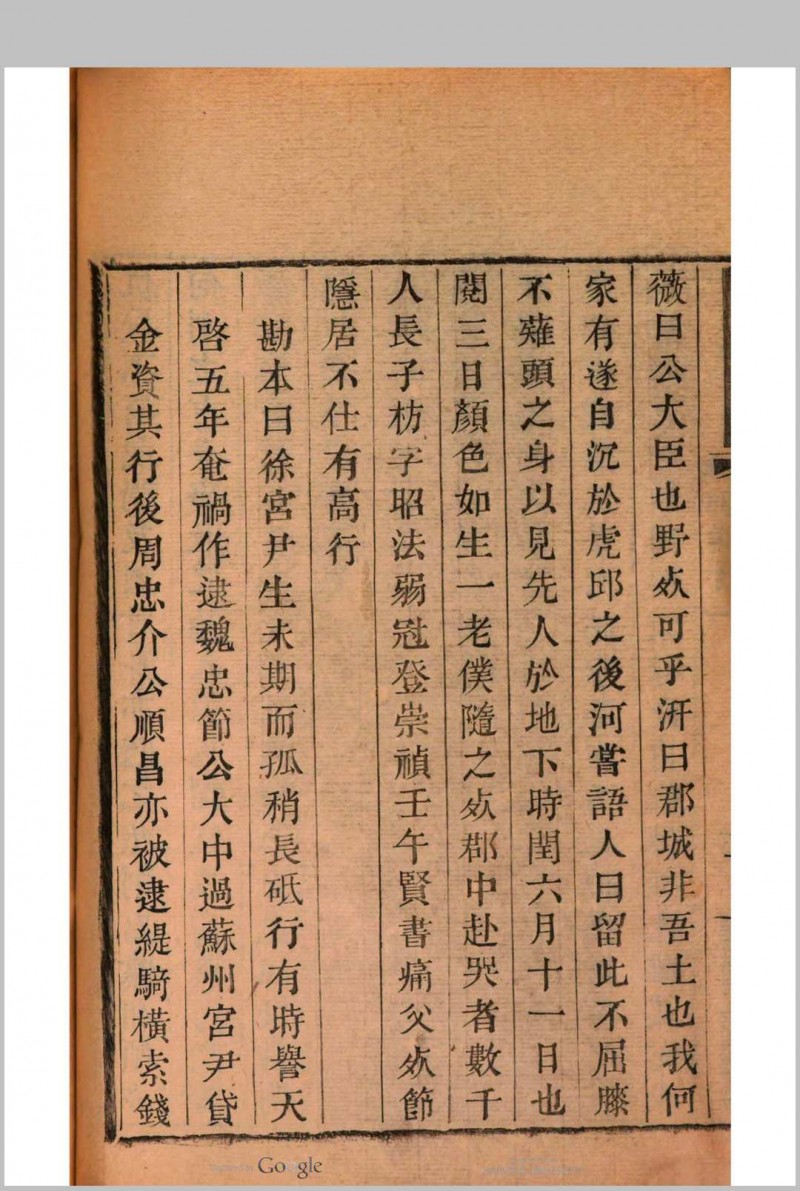 薇曰公大臣也野㱙可乎汧曰郡城非吾土也我何
家有遂自沉於虎邱之後河嘗語人曰留此不屈膝
不薙頭之身以見先人於地下時閏六月十一日也
閱三日顏色如生一老僕隨之㱙郡中赴哭者數千
人長子枋字昭法弱冠登崇禎壬午賢書痛父㱙節
隱居不仕有高行
勘本曰徐宮尹生未期而孤稍長砥行有時譽天
啓五年奄禍作逮魏忠節公大中過蘇州宮尹貸
金資其行後周忠介公順昌亦被逮緹騎橫索錢
Google